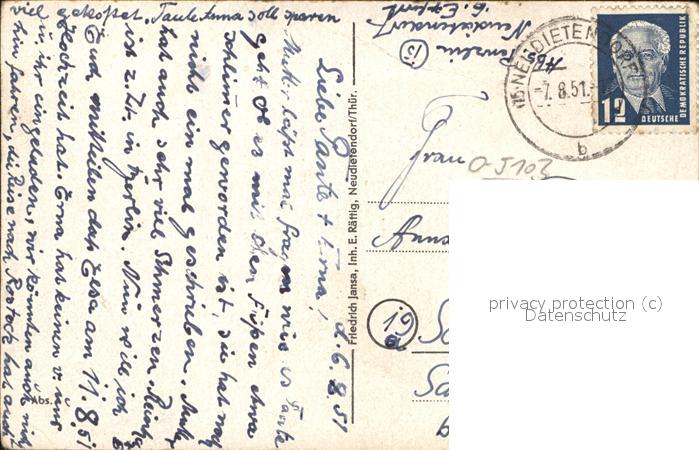 d. 6. 8. 51
Liebe Tante + Erna,
Mutter läßt mal fragen wie es Tante
geht ob es mit den Füßen etwa
schlimmer geworden ist, sie hat noch
nicht ein mal geschrieben. Mutter
hat auch sehr viel Schmerzen.
ist z. Zt. in Berlin. Nun will ich
Euch mitteilen das am 11.8.51
Hochzeit hat. Erna hat keinen v. uns
u. ihr eingeladen, wir könnten auch nicht
hin fahren, die Reise nach Rostock hat auch
viel gekostet, Tante Anna soll sparen
Abs.
Friedrich Jansa, Inh. E. Rättig, Neudietendorf/Thür.
Abs.
Neudietendorf
b. Erfurt
(15)
NEUDIETENDORF
-7.8.51.-
b
12
DEUTSCHE
DEMOKRATISCHE REPUBLIK
Frau
O-5103
Anna
19
a
privacy protection (c)
Datenschutz